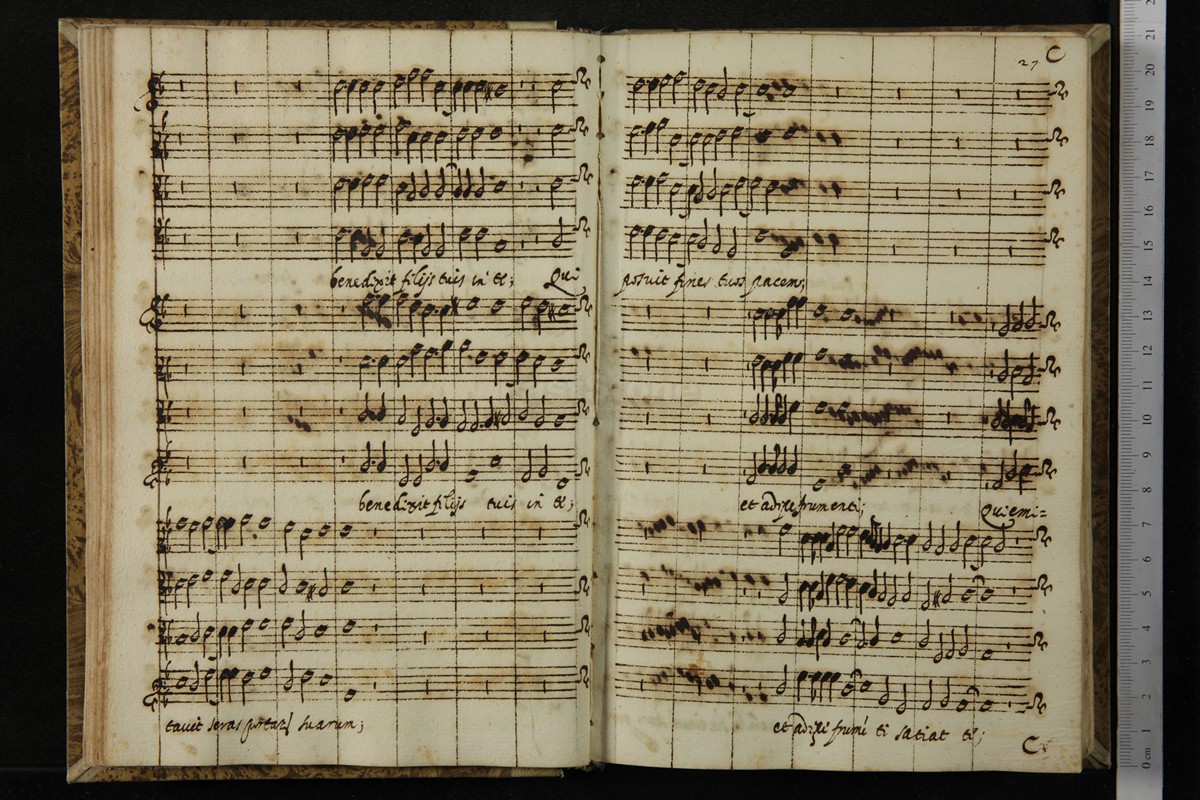 27 C
benedixit filijs tuis in te; Qui
posuit fines tuos pacem;
benedixit filijs tuis in te;
et adipe frumenti; Qui emi=
tavit seras portaꝝ suarum;
et adipe frumē ti satiat te;
C
0 cm 1 2 3 4 5 6 7 8 9 10 11 12 13 14 15 16 17 18 19 20 21